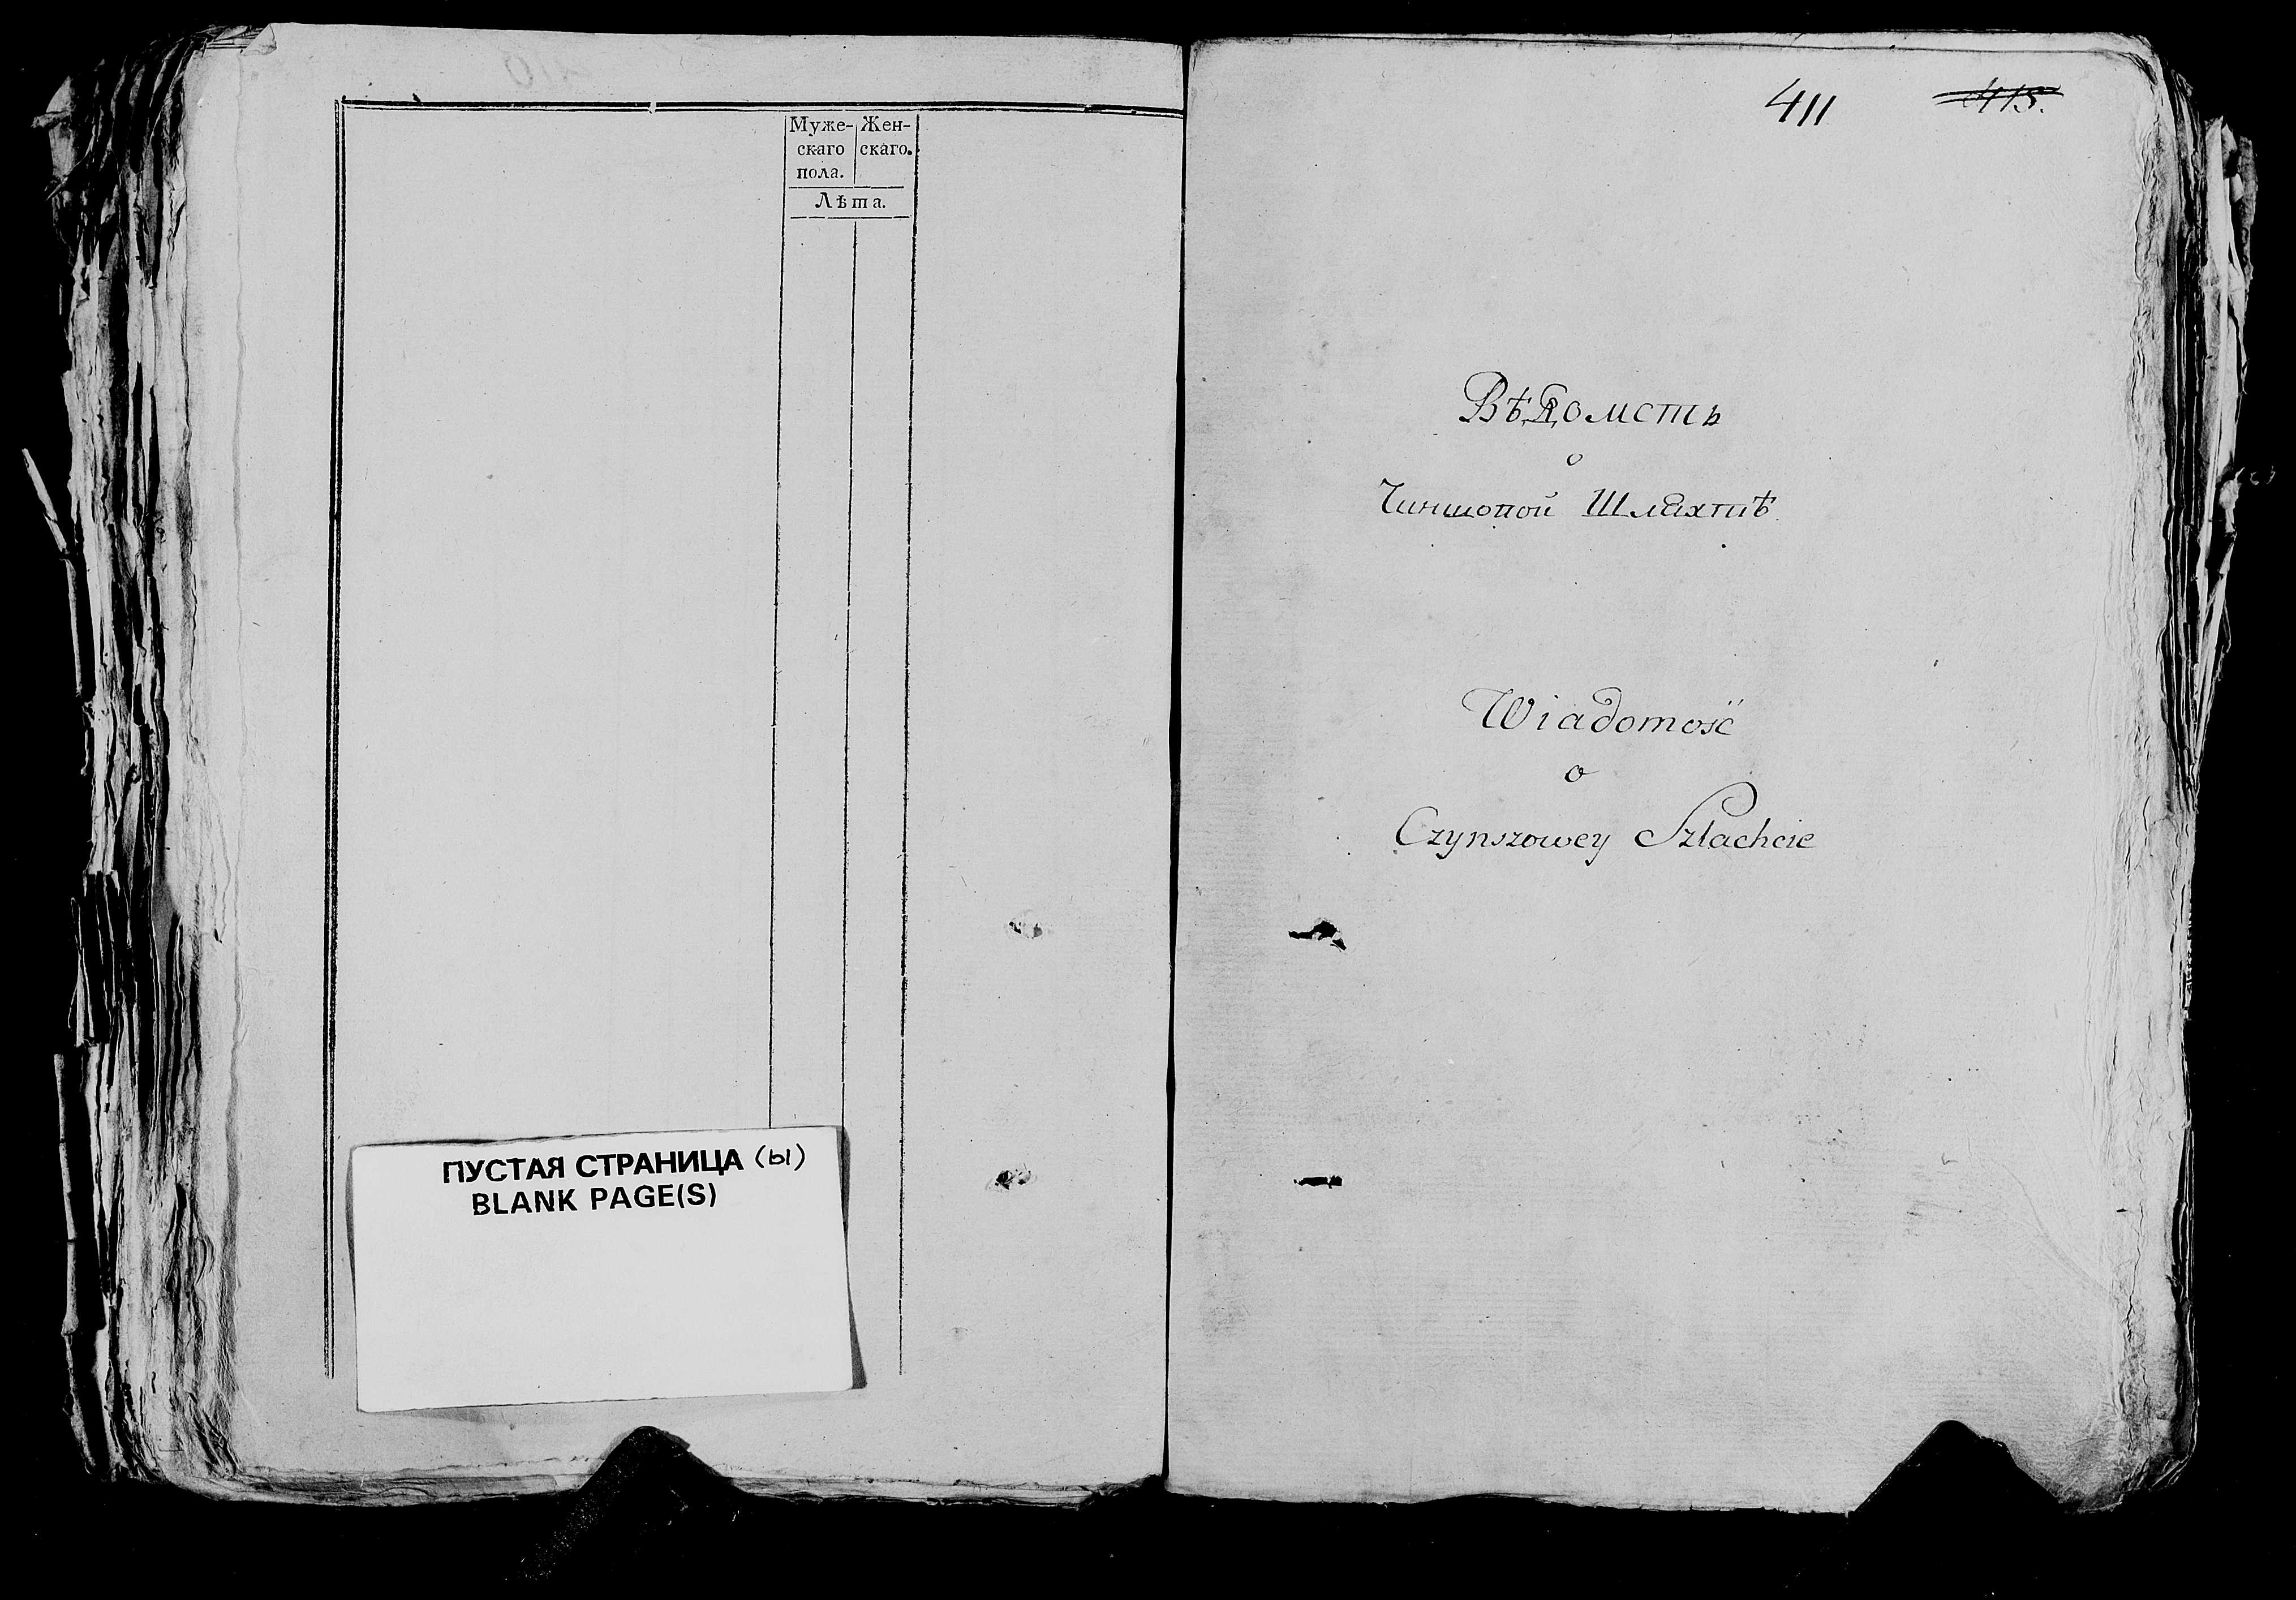 Муже- Жен-
скаго скаго.
пола.
Лѣта.
ПУСТАЯ СТРАНИЦА (Ы)
BLANK PAGE(S)
411 415.
Вѣдомсть
о
Чиншовой Шляхтѣ
Wiadomość
o
Czynszowey Szlachcie